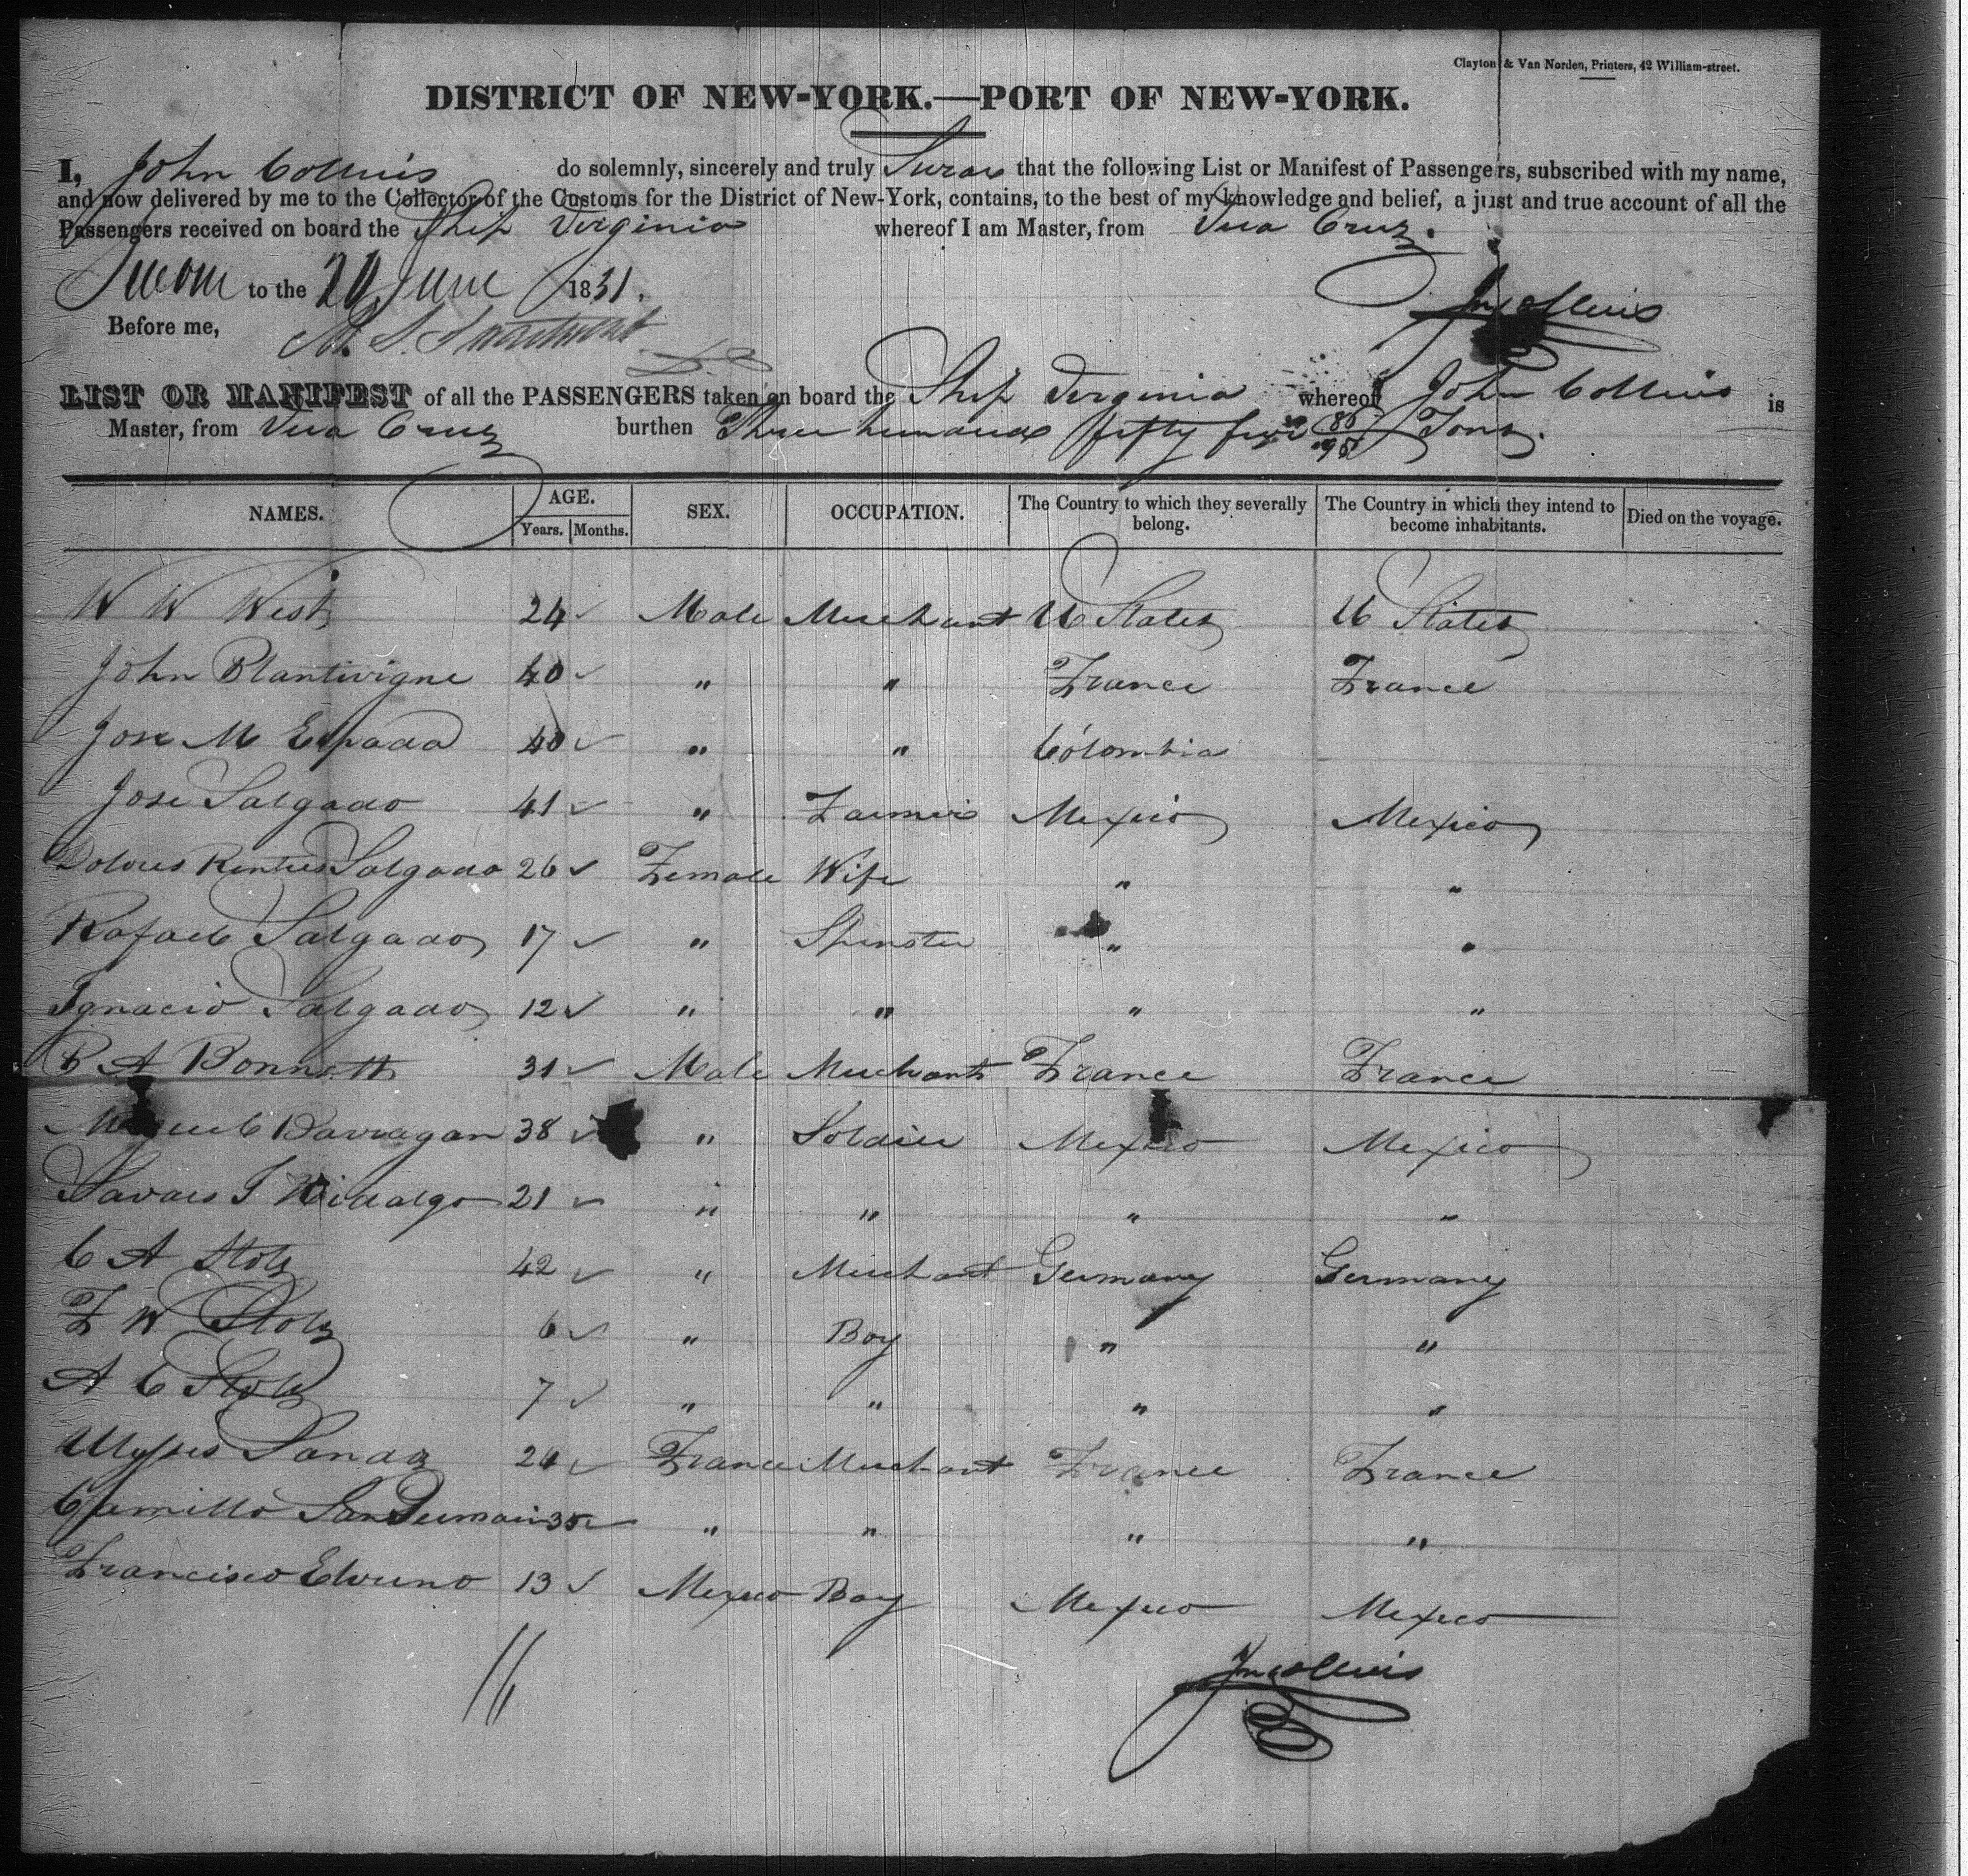 Clayton & Van Norden, Printers, 42 William-street.
DISTRICT OF NEW-YORK.—PORT OF NEW-YORK.
I, John Collins do solemnly, sincerely and truly Swear that the following List or Manifest of Passengers, subscribed with my name,
and now delivered by me to the Collector of the Customs for the District of New-York, contains, to the best of my knowledge and belief, a just and true account of all the
Passengers received on board the Ship Virginia whereof I am Master, from Vera Cruz.
Sworn to the 20 June 1831.
Jn Collins
Before me,
LIST OR MANIFEST of all the PASSENGERS taken on board the Ship Virginia whereof John Collins is
Master, from Vera Cruz burthen Three hundred fifty five Tons.
NAMES. AGE. Years. Months. SEX. OCCUPATION. The Country to which they severally belong. The Country in which they intend to become inhabitants. Died on the voyage.
W W West 24 Male Merchant U States U States
John Plantevigne 40 " " France France
Jose M Espada 40 " " Colombia
Jose Salgado 41 " Farmer Mexico Mexico
Dolores Salgado 26 Female Wife " "
Rafaela Salgado 17 " Spinster " "
Ignacio Salgado 12 " " " "
P A Bonnett 31 Male Merchant France France
Miguel Barragan 38 " Soldier Mexico Mexico
J Hidalgo 21 " " " "
C A Stolz 42 " Merchant Germany Germany
F W Stolz 6 " Boy " "
A C Stolz 7 " " " "
Ulysses 24 France Merchant France France
Camillo 35 " " " "
Francisco 13 Mexico Boy Mexico Mexico
16
Jn Collins